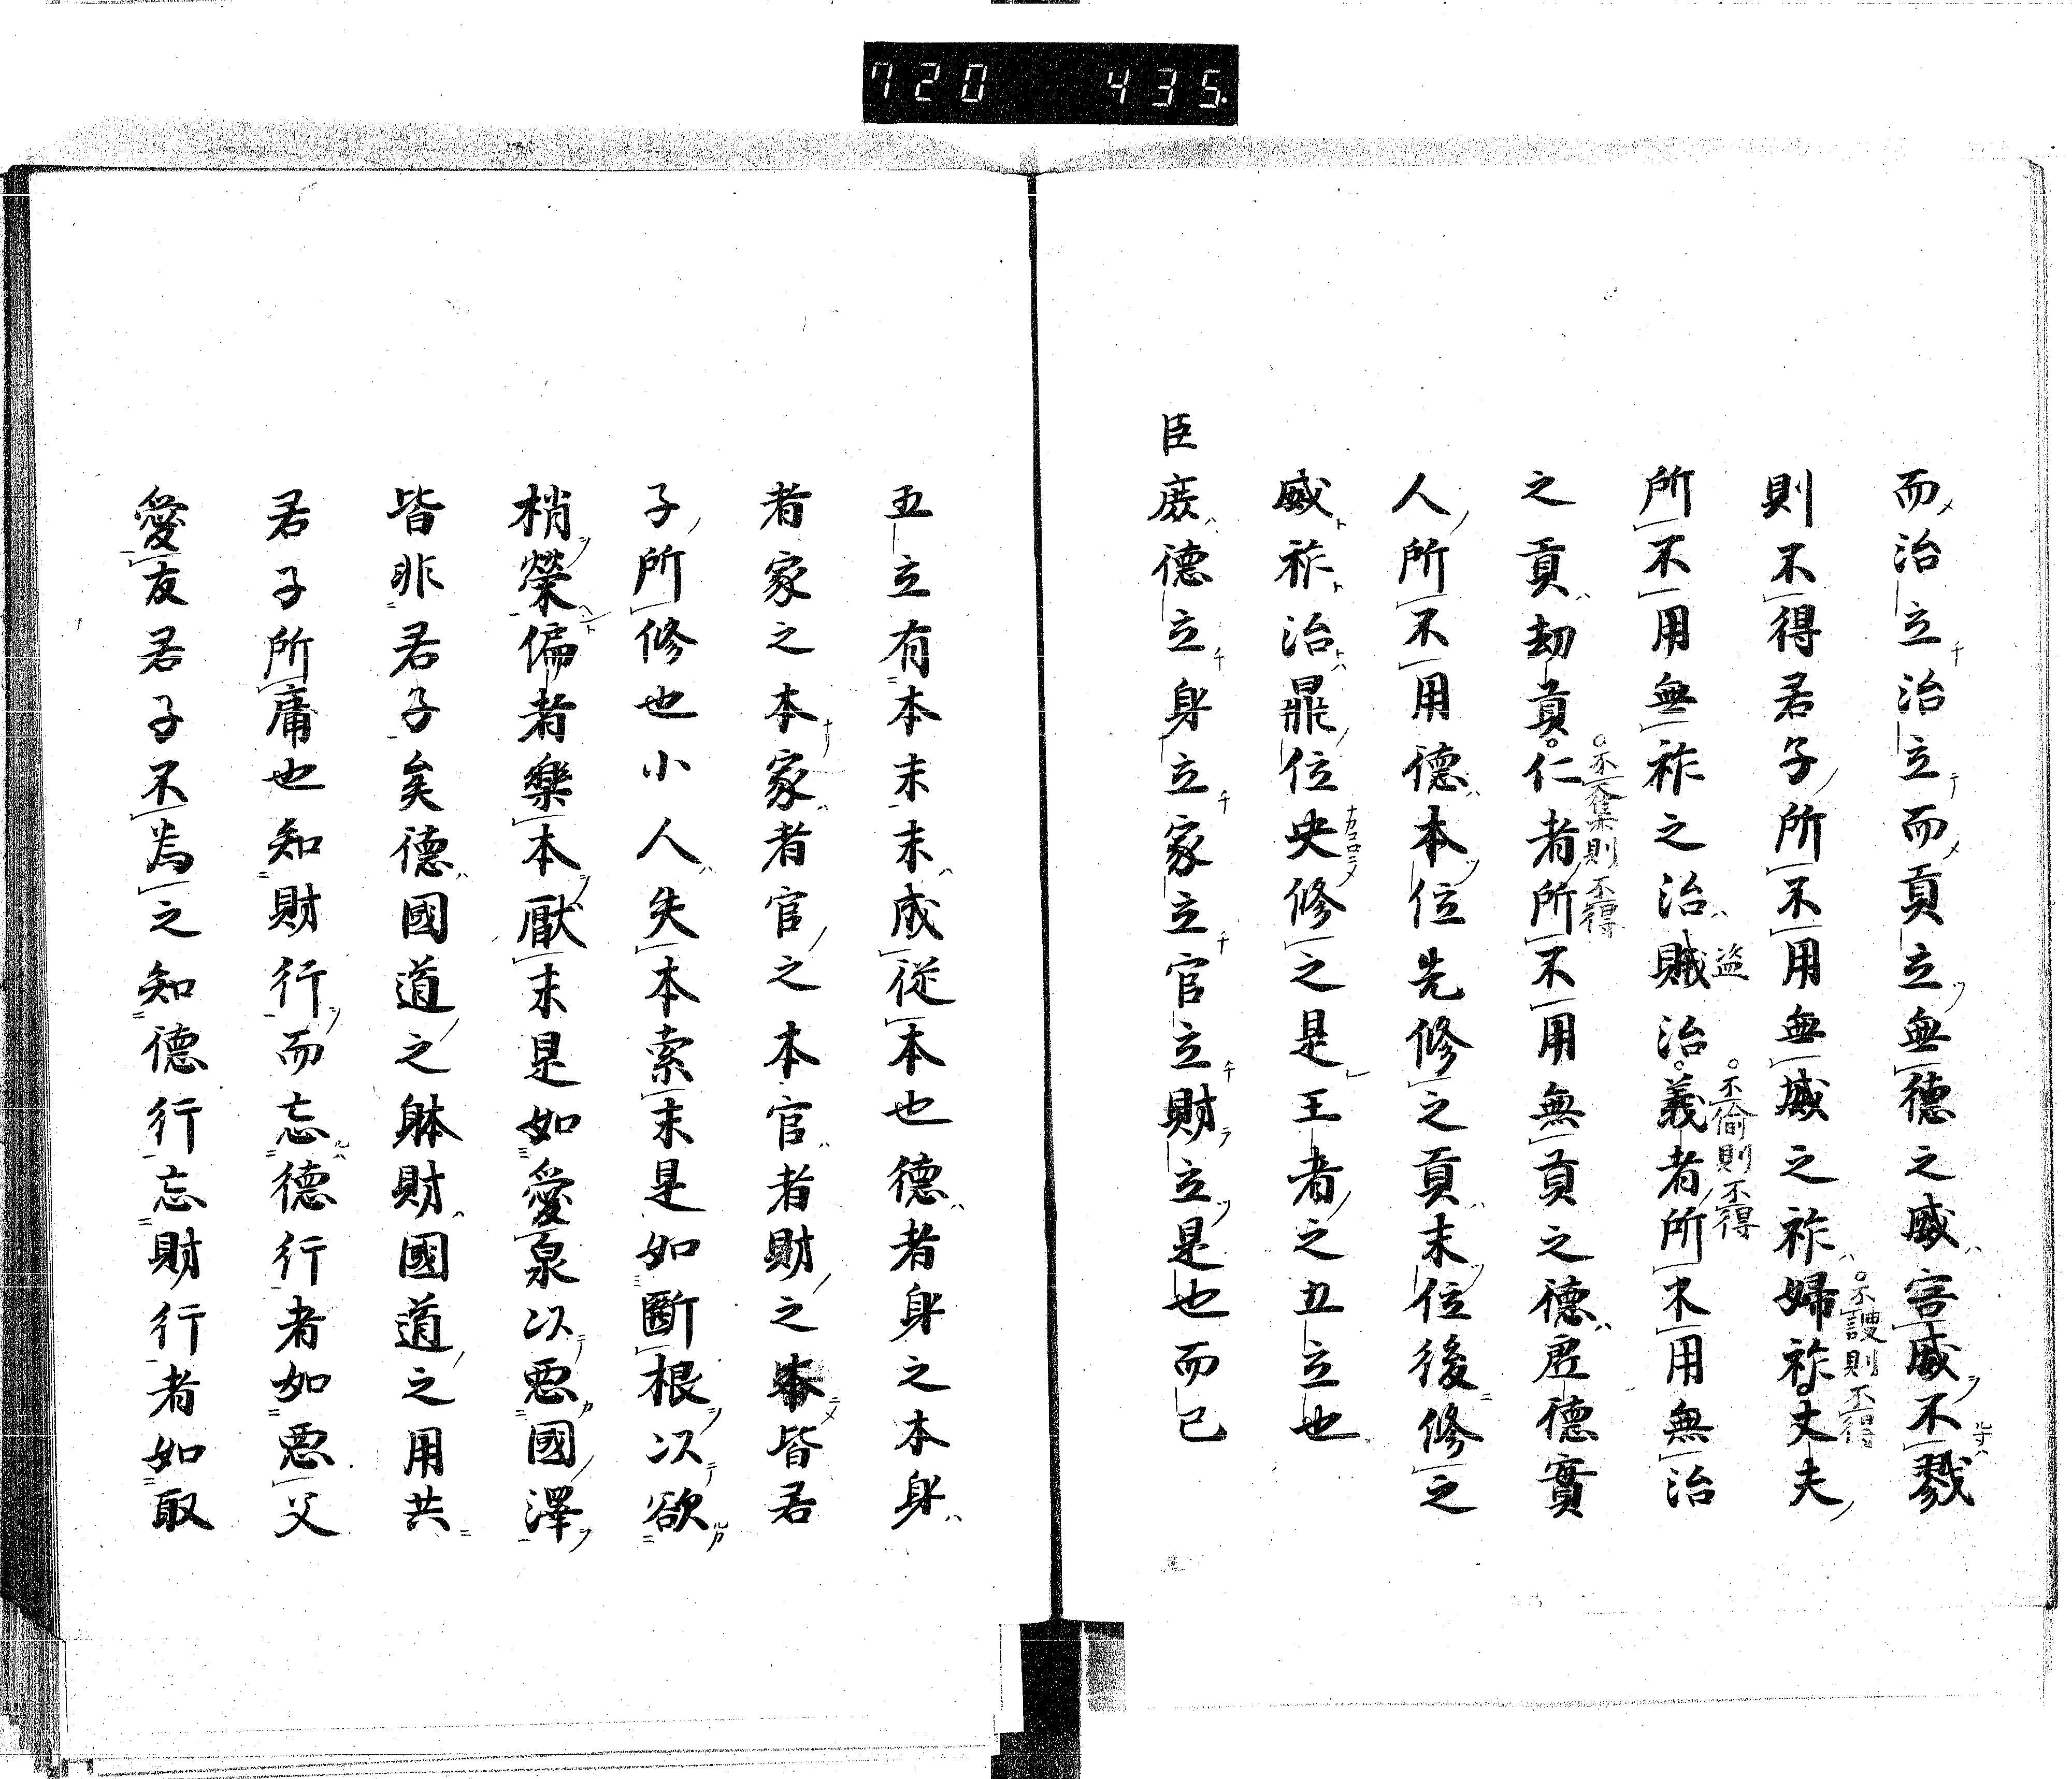 720 435
而治立治立而貢立無德之威害威不戮
則不得君子所不用無威之祚婦祚丈夫
不謏則不得
所不用無祚之治賊治義者所不用無治
盗
不偷則不得
之貢劫貢仁者所不用無貢之德虛德實
不則不得
人所不用德本位先修之貢末位後修之
威祚治鼎位央修之是王者之五立也
ナカコロニメ
臣庶德立身立家立官立財立是也而已
五立有本末末成從本也德者身之本身
者家之本家者官之本官者財之本皆君
子所修也小人失本索末是如斷根以欲
梢榮偏者樂本厭末是如愛泉以惡國澤
皆非君子矣德國道之躰財國道之用共
君子所庸也知財行而忘德行者如惡父
愛友君子不為之知德行忘財行者如取